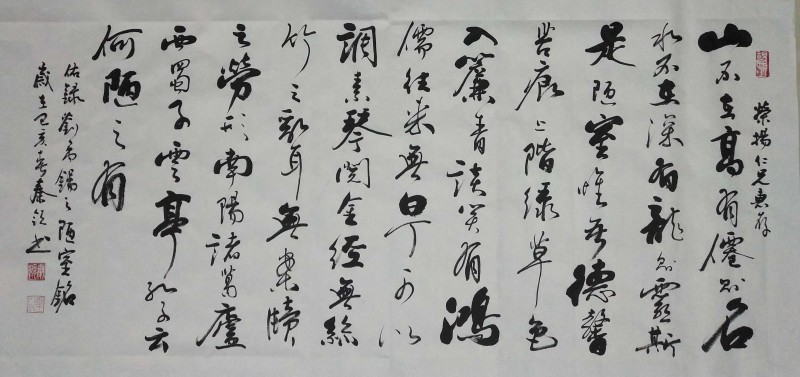 榮揚仁兄惠存
山不在高有僊則名
水不在深有龍則靈斯
是陋室惟吾德馨
苔痕上階绿草色
入簾青談笑有鴻
儒往来無白丁可以
調素琴閱金經無絲
竹之亂耳無案牘
之勞形南陽諸葛廬
西蜀子雲亭孔子云
何陋之有
錄劉禹錫之陋室銘
歲在己亥秦书